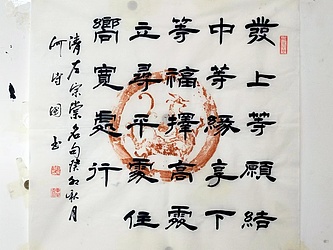 發上等願結
中等緣享下
等福擇高處
立尋平處住
嚮寬處行
清左宗棠名句癸卯秋月
何 國书